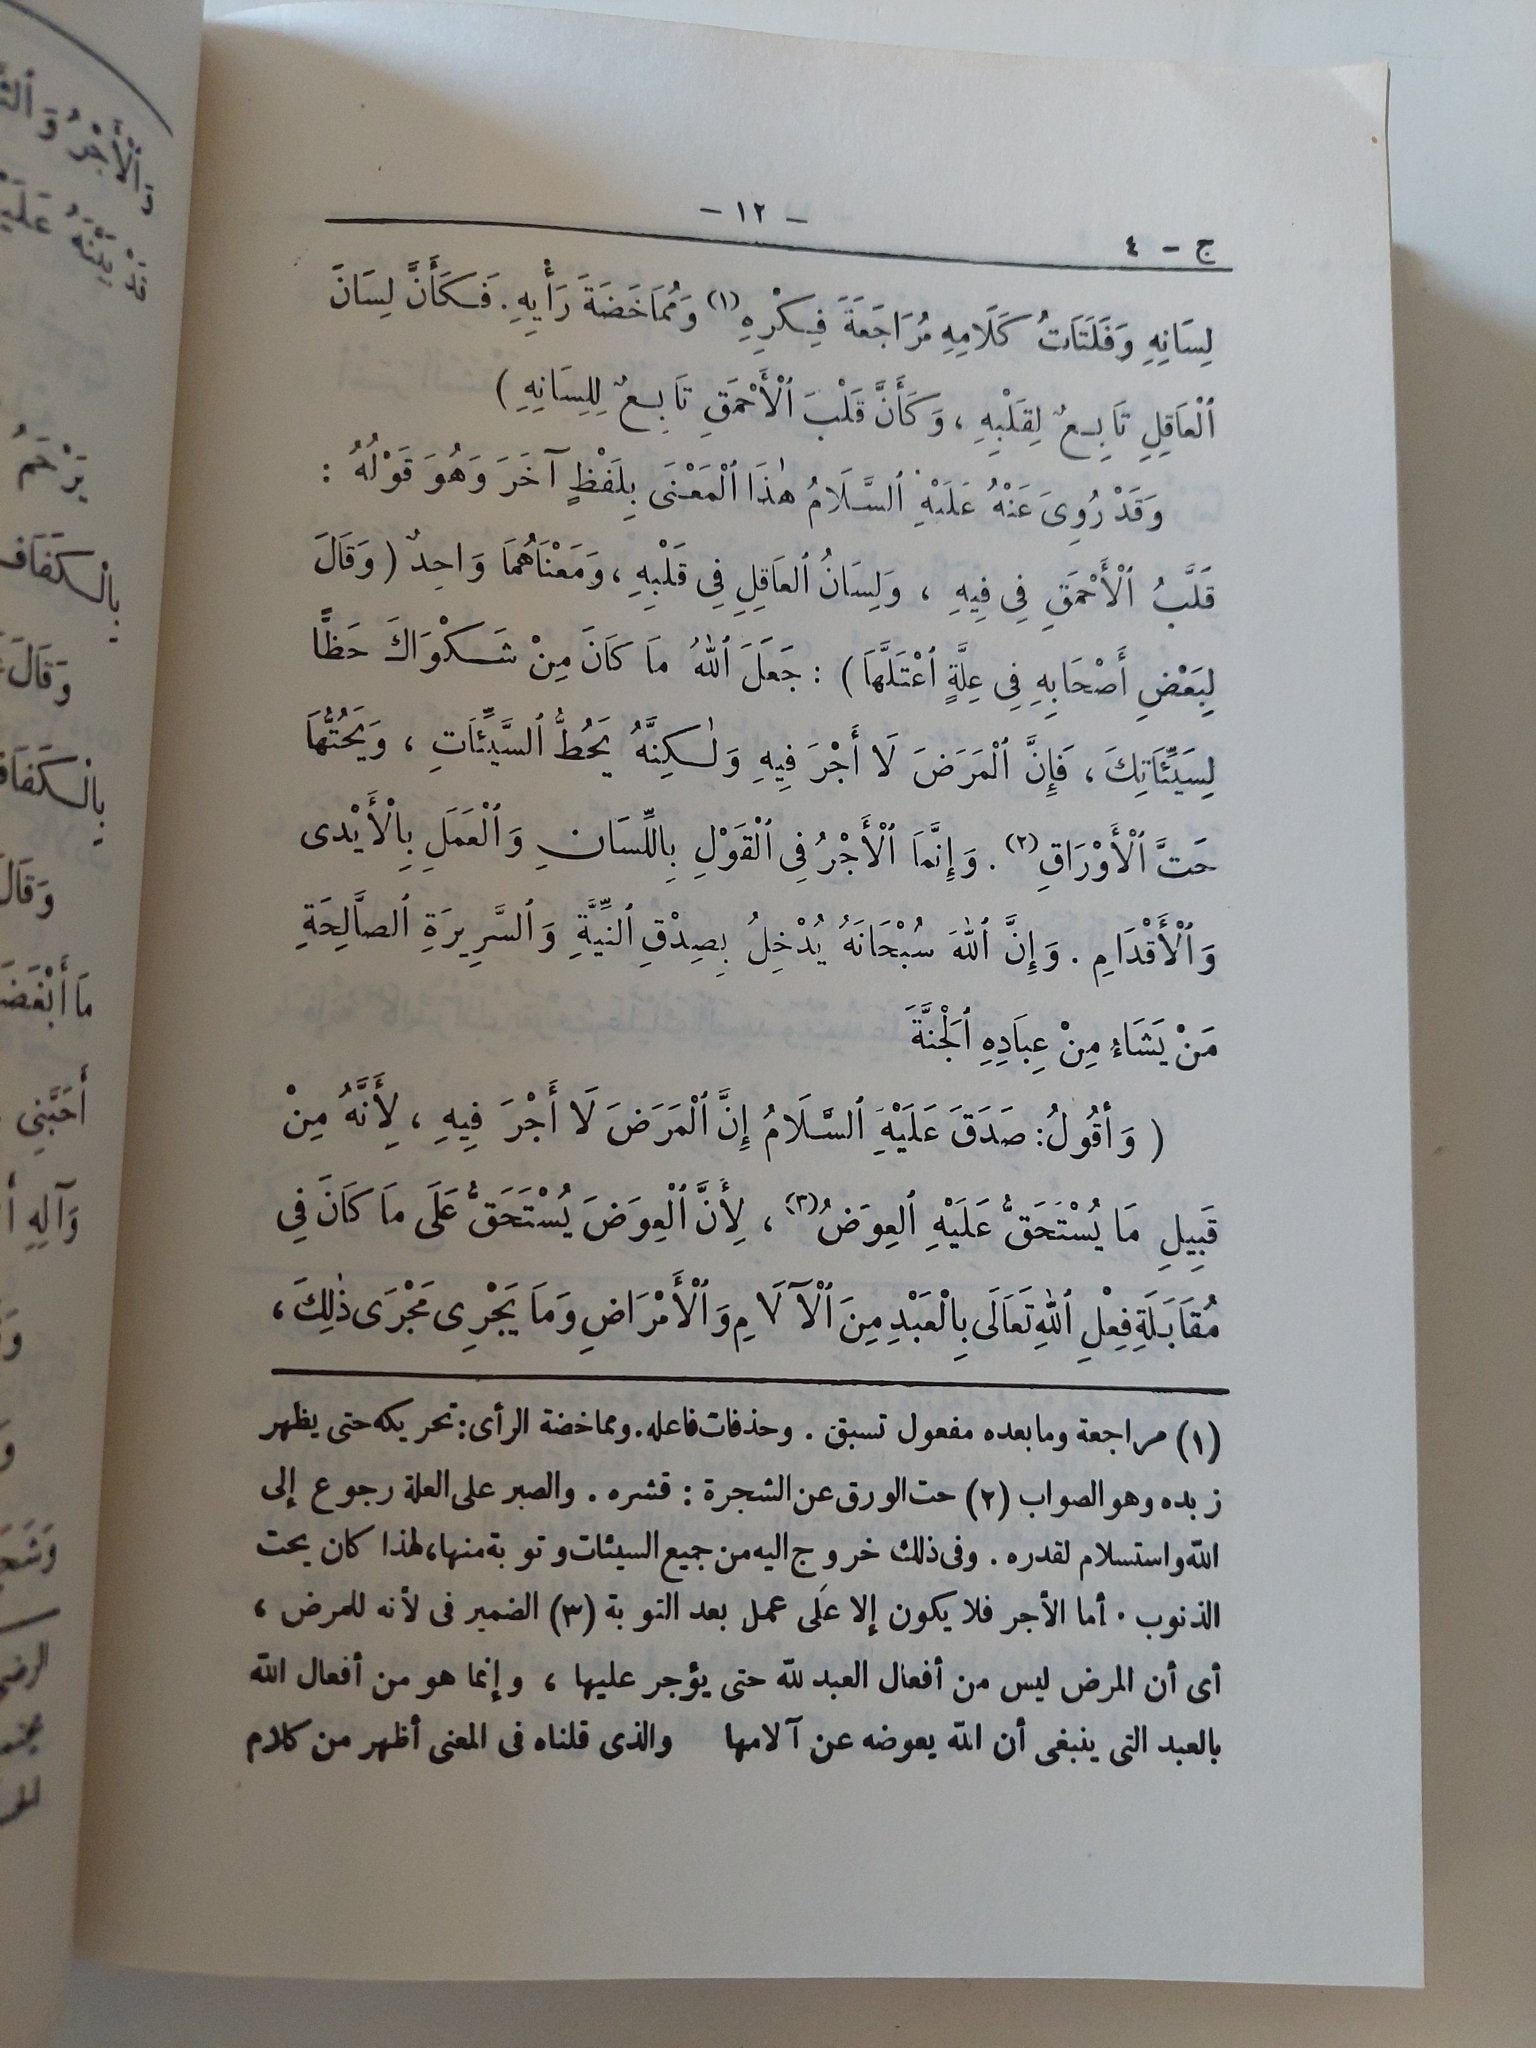 - ١٢ -
ج - ٤
لِسَانِهِ وَفَلَتَاتُ كَلَامِهِ مُرَاجَعَةَ فِكْرِهِ (١) وَمُمَاخَضَةَ رَأْيِهِ. فَكَأَنَّ لِسَانَ
ٱلْعَاقِلِ تَابِعٌ لِقَلْبِهِ ، وَكَأَنَّ قَلْبَ ٱلْأَحْمَقِ تَابِعٌ لِلِسَانِهِ )
وَقَدْ رُوِىَ عَنْهُ عَلَيْهِ ٱلسَّلَامُ هٰذَا ٱلْمَعْنَى بِلَفْظٍ آخَرَ وَهُوَ قَوْلُهُ :
قَلْبُ ٱلْأَحْمَقِ فِى فِيهِ ، وَلِسَانُ ٱلعَاقِلِ فِى قَلْبِهِ ، وَمَعْنَاهُمَا وَاحِدٌ ( وَقَالَ
لِبَعْضِ أَصْحَابِهِ فِى عِلَّةٍ ٱعْتَلَّهَا ) : جَعَلَ ٱللهُ مَا كَانَ مِنْ شَكْوَاكَ حَظًّا
لِسَيِّئَاتِكَ ، فَإِنَّ ٱلْمَرَضَ لَا أَجْرَ فِيهِ وَلٰكِنَّهُ يَحُطُّ ٱلسَّيِّئَاتِ ، وَيَحُتُّهَا
حَتَّ ٱلْأَوْرَاقِ (٢) . وَإِنَّمَا ٱلْأَجْرُ فِى ٱلْقَوْلِ بِاللِّسَانِ وَٱلْعَمَلِ بِالْأَيْدِى
وَٱلْأَقْدَامِ . وَإِنَّ ٱللهَ سُبْحَانَهُ يُدْخِلُ بِصِدْقِ ٱلنِّيَّةِ وَٱلسَّرِيرَةِ ٱلصَّالِحَةِ
مَنْ يَشَاءُ مِنْ عِبَادِهِ ٱلْجَنَّةَ
( وَأَقُولُ: صَدَقَ عَلَيْهِ ٱلسَّلَامُ إِنَّ ٱلْمَرَضَ لَا أَجْرَ فِيهِ ، لِأَنَّهُ مِنْ
قَبِيلِ مَا يُسْتَحَقُّ عَلَيْهِ ٱلعِوَضُ (٣) ، لِأَنَّ ٱلْعِوَضَ يُسْتَحَقُّ عَلَى مَا كَانَ فِى
مُقَابَلَةِ فِعْلِ ٱللهِ تَعَالَى بِالْعَبْدِ مِنَ ٱلْآلَامِ وَٱلْأَمْرَاضِ وَمَا يَجْرِى مَجْرَى ذٰلِكَ ،
(١) مراجعة وما بعده مفعول تسبق . وحذفات فاعله. ومماخضة الرأى: تحريكه حتى يظهر
زبده وهو الصواب (٢) حت الورق عن الشجرة : قشره . والصبر على العلة رجوع إلى
الله واستسلام لقدره . وفى ذلك خروج اليه من جميع السيئات وتوبة منها، لهذا كان يحت
الذنوب . أما الأجر فلا يكون إلا على عمل بعد التوبة (٣) الضمير فى لأنه للمرض ،
أى أن المرض ليس من أفعال العبد لله حتى يؤجر عليها ، وإنما هو من أفعال الله
بالعبد التى ينبغى أن الله يعوضه عن آلامها والذى قلناه فى المعنى أظهر من كلام